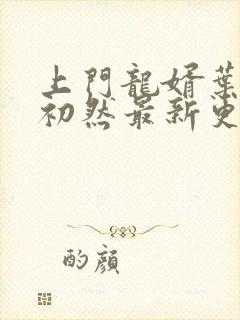 上門龍婿葉
初然最新更
酌顏